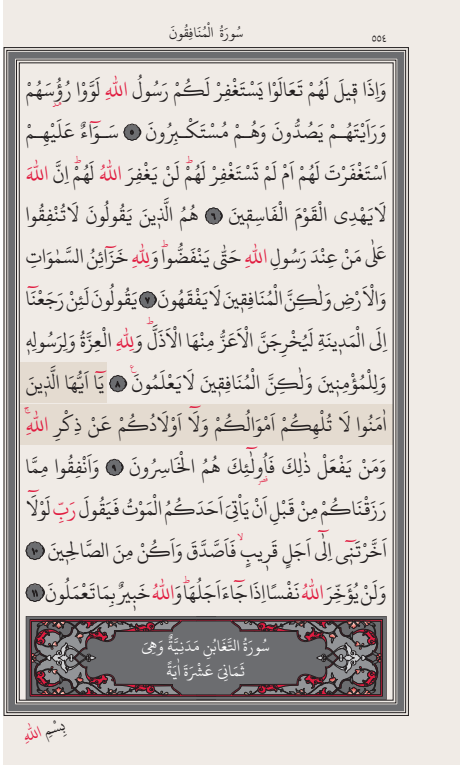 سُورَةُ الْمُنَافِقُونَ
٥٥٤
وَاِذَا ق۪يلَ لَهُمْ تَعَالَوْا يَسْتَغْفِرْ لَكُمْ رَسُولُ اللّٰهِ لَوَّوْا رُؤُ۫سَهُمْ
وَرَاَيْتَهُمْ يَصُدُّونَ وَهُمْ مُسْتَكْبِرُونَ ﴿٥﴾ سَوَٓاءٌ عَلَيْهِمْ
اَسْتَغْفَرْتَ لَهُمْ اَمْ لَمْ تَسْتَغْفِرْ لَهُمْۜ لَنْ يَغْفِرَ اللّٰهُ لَهُمْۜ اِنَّ اللّٰهَ
لَا يَهْدِى الْقَوْمَ الْفَاسِق۪ينَ ﴿٦﴾ هُمُ الَّذ۪ينَ يَقُولُونَ لَا تُنْفِقُوا
عَلٰى مَنْ عِنْدَ رَسُولِ اللّٰهِ حَتّٰى يَنْفَضُّواۜ وَلِلّٰهِ خَزَٓائِنُ السَّمٰوَاتِ
وَالْاَرْضِ وَلٰكِنَّ الْمُنَافِق۪ينَ لَا يَفْقَهُونَ ﴿٧﴾ يَقُولُونَ لَئِنْ رَجَعْنَٓا
اِلَى الْمَد۪ينَةِ لَيُخْرِجَنَّ الْاَعَزُّ مِنْهَا الْاَذَلَّۜ وَلِلّٰهِ الْعِزَّةُ وَلِرَسُولِه۪
وَلِلْمُؤْمِن۪ينَ وَلٰكِنَّ الْمُنَافِق۪ينَ لَا يَعْلَمُونَ۟ ﴿٨﴾ يَٓا اَيُّهَا الَّذ۪ينَ
اٰمَنُوا لَا تُلْهِكُمْ اَمْوَالُكُمْ وَلَٓا اَوْلَادُكُمْ عَنْ ذِكْرِ اللّٰهِۚ
وَمَنْ يَفْعَلْ ذٰلِكَ فَاُو۬لٰٓئِكَ هُمُ الْخَاسِرُونَ ﴿٩﴾ وَاَنْفِقُوا مِمَّا
رَزَقْنَاكُمْ مِنْ قَبْلِ اَنْ يَأْتِيَ اَحَدَكُمُ الْمَوْتُ فَيَقُولَ رَبِّ لَوْلَٓا
اَخَّرْتَن۪ٓى اِلٰٓى اَجَلٍ قَر۪يبٍۙ فَاَصَّدَّقَ وَاَكُنْ مِنَ الصَّالِح۪ينَ ﴿١٠﴾
وَلَنْ يُؤَخِّرَ اللّٰهُ نَفْسًا اِذَا جَٓاءَ اَجَلُهَاۜ وَاللّٰهُ خَب۪يرٌ بِمَا تَعْمَلُونَ ﴿١١﴾
سُورَةُ التَّغَابُنِ مَدَنِيَّةٌ وَهِيَ
ثَمَانِيَ عَشْرَةَ اٰيَةً
بِسْمِ اللّٰهِ